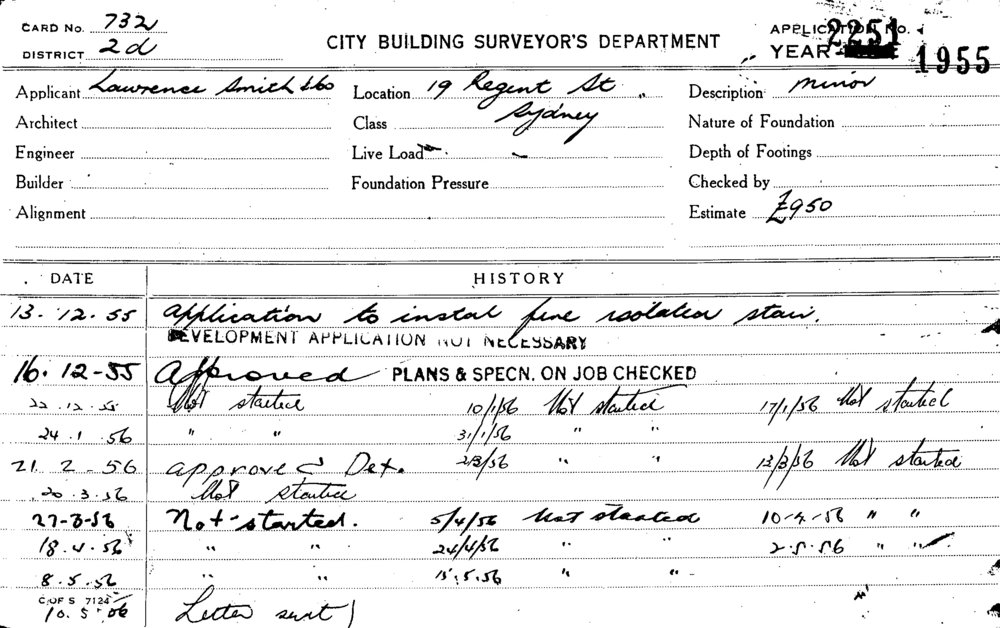 CARD No. 732
DISTRICT 2d
CITY BUILDING SURVEYOR'S DEPARTMENT
APPLICATION No. 2251
YEAR 1955
Applicant Lawrence Smith & Co
Location 19 Regent St
Description minor
Architect
Class Sydney
Nature of Foundation
Engineer
Live Load
Depth of Footings
Builder
Foundation Pressure
Checked by
Alignment
Estimate £950
DATE HISTORY
13.12.55 Application to instal fire isolated stair.
DEVELOPMENT APPLICATION NOT NECESSARY
16.12-55 Approved PLANS & SPECN. ON JOB CHECKED
22.12.55 Not started 10/1/56 Not started 17/1/56 Not started
24.1.56 " " 31/1/56 " "
21.2-56 approved Det. 2/3/56 " " 13/3/56 Not started
20.3.56 Not started
27-3-56 Not started. 5/4/56 Not started 10-4-56 " "
18.4.56 " " 24/4/56 " " 2.5.56 " "
8.5.56 " " 15.5.56 " "
C OF S 7124
10.5.56 Letter sent